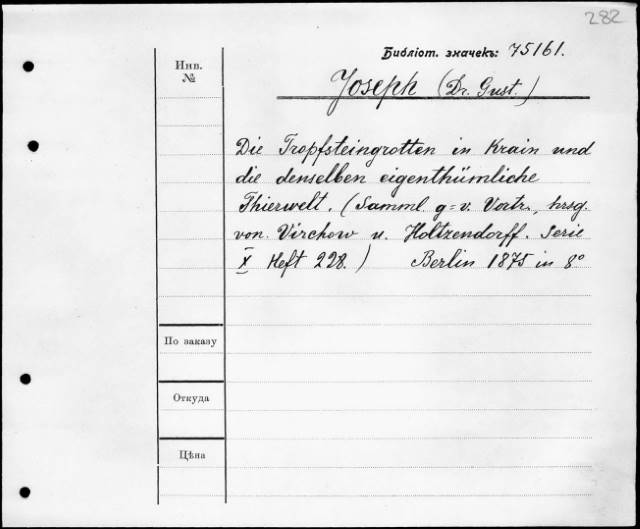 282
Библіот. значекъ: 75161.
Инв.
№
Joseph (Dr. Gust.)
Die Tropfsteingrotten in Krain und
die denselben eigenthümliche
Thierwelt. (Samml g=v. Vortr., hrsg.
von Virchow u. Holtzendorff. Serie
X Heft 228.) Berlin 1875 in 8°
По заказу
Откуда
Цѣна